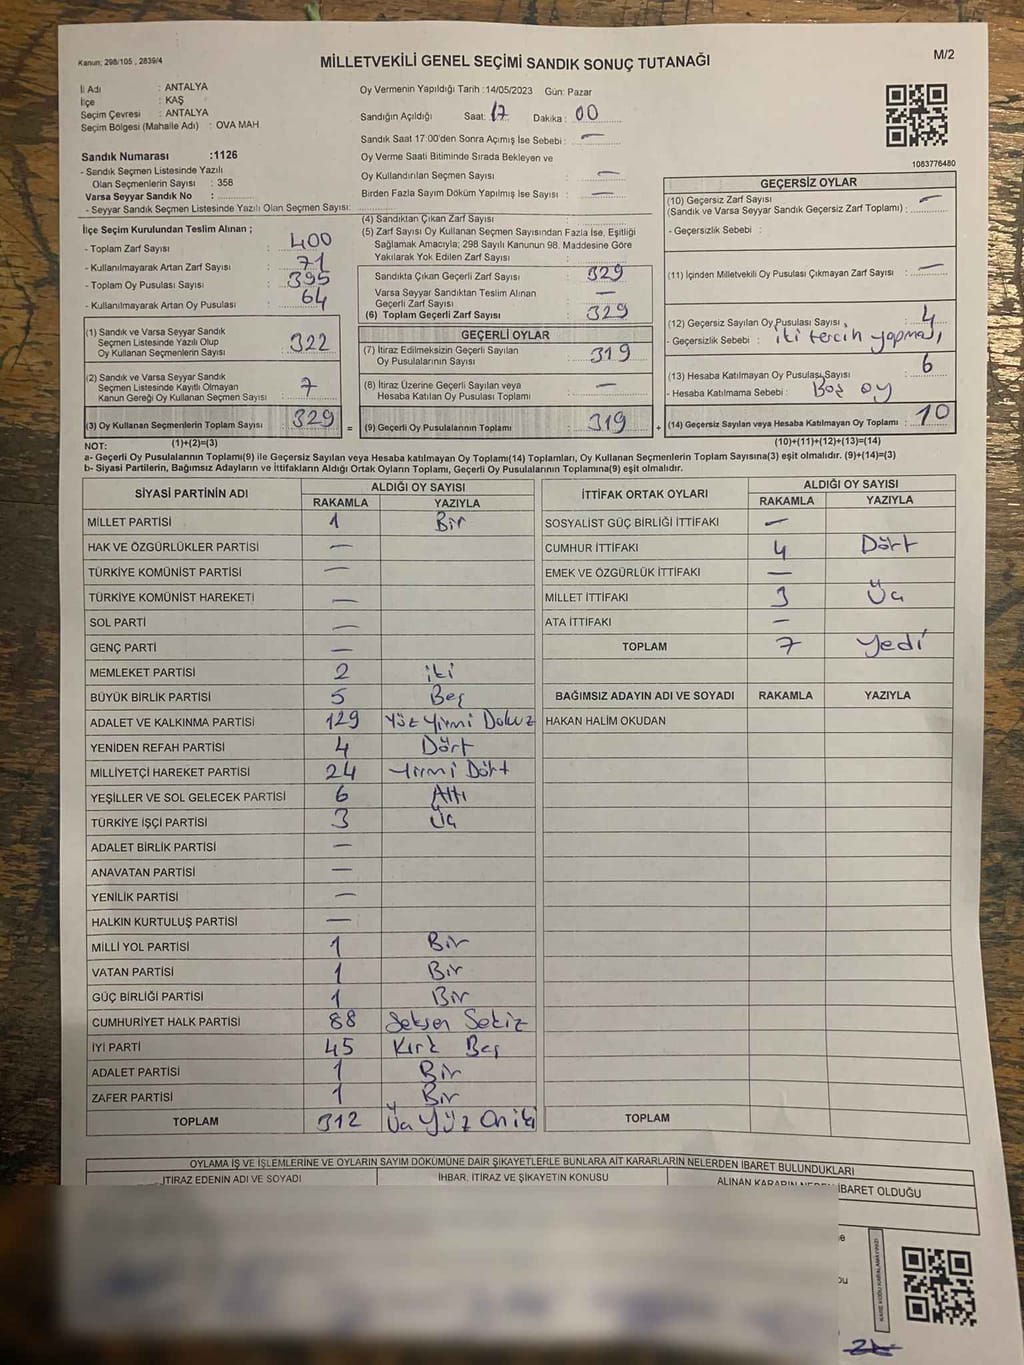 Kanun; 298/105 , 2839/4
MİLLETVEKİLİ GENEL SEÇİMİ SANDIK SONUÇ TUTANAĞI
M/2
İl Adı : ANTALYA
İlçe : KAŞ
Seçim Çevresi : ANTALYA
Seçim Bölgesi (Mahalle Adı) : OVA MAH
Sandık Numarası :1126
- Sandık Seçmen Listesinde Yazılı
Olan Seçmenlerin Sayısı : 358
Varsa Seyyar Sandık No :
- Seyyar Sandık Seçmen Listesinde Yazılı Olan Seçmen Sayısı:
Oy Vermenin Yapıldığı Tarih :14/05/2023 Gün: Pazar
Sandığın Açıldığı Saat: 17 Dakika: 00
Sandık Saat 17:00'den Sonra Açımış İse Sebebi : —
Oy Verme Saati Bitiminde Sırada Bekleyen ve
Oy Kullandırılan Seçmen Sayısı : —
Birden Fazla Sayım Döküm Yapılmış İse Sayısı : —
1083776480
İlçe Seçim Kurulundan Teslim Alınan ;
- Toplam Zarf Sayısı : 400
- Kullanılmayarak Artan Zarf Sayısı : 71
- Toplam Oy Pusulası Sayısı : 395
- Kullanılmayarak Artan Oy Pusulası : 64
(1) Sandık ve Varsa Seyyar Sandık
Seçmen Listesinde Yazılı Olup
Oy Kullanan Seçmenlerin Sayısı : 322
(2) Sandık ve Varsa Seyyar Sandık
Seçmen Listesinde Kayıtlı Olmayan
Kanun Gereği Oy Kullanan Seçmen Sayısı : 7
(3) Oy Kullanan Seçmenlerin Toplam Sayısı : 329 =
(4) Sandıktan Çıkan Zarf Sayısı :
(5) Zarf Sayısı Oy Kullanan Seçmen Sayısından Fazla İse, Eşitliği
Sağlamak Amacıyla; 298 Sayılı Kanunun 98. Maddesine Göre
Yakılarak Yok Edilen Zarf Sayısı :
Sandıkta Çıkan Geçerli Zarf Sayısı : 329
Varsa Seyyar Sandıktan Teslim Alınan
Geçerli Zarf Sayısı : —
(6) Toplam Geçerli Zarf Sayısı : 329
GEÇERLİ OYLAR
(7) İtiraz Edilmeksizin Geçerli Sayılan
Oy Pusulalarının Sayısı : 319
(8) İtiraz Üzerine Geçerli Sayılan veya
Hesaba Katılan Oy Pusulası Toplamı : —
(9) Geçerli Oy Pusulalarının Toplamı : 319 +
GEÇERSİZ OYLAR
(10) Geçersiz Zarf Sayısı
(Sandık ve Varsa Seyyar Sandık Geçersiz Zarf Toplamı) : —
- Geçersizlik Sebebi :
(11) İçinden Milletvekili Oy Pusulası Çıkmayan Zarf Sayısı : —
(12) Geçersiz Sayılan Oy Pusulası Sayısı : 4
- Geçersizlik Sebebi : iki tercih yapması
(13) Hesaba Katılmayan Oy Pusulası Sayısı : 6
- Hesaba Katılmama Sebebi : Boş oy
(14) Geçersiz Sayılan veya Hesaba Katılmayan Oy Toplamı : 10
NOT: (1)+(2)=(3) (10)+(11)+(12)+(13)=(14)
a- Geçerli Oy Pusulalarının Toplamı(9) ile Geçersiz Sayılan veya Hesaba katılmayan Oy Toplamı(14) Toplamları, Oy Kullanan Seçmenlerin Toplam Sayısına(3) eşit olmalıdır. (9)+(14)=(3)
b- Siyasi Partilerin, Bağımsız Adayların ve İttifakların Aldığı Ortak Oyların Toplamı, Geçerli Oy Pusulalarının Toplamına(9) eşit olmalıdır.
SİYASİ PARTİNİN ADI ALDIĞI OY SAYISI
RAKAMLA YAZIYLA
MİLLET PARTİSİ 1 Bir
HAK VE ÖZGÜRLÜKLER PARTİSİ —
TÜRKİYE KOMÜNİST PARTİSİ —
TÜRKİYE KOMÜNİST HAREKETİ —
SOL PARTİ —
GENÇ PARTİ —
MEMLEKET PARTİSİ 2 iki
BÜYÜK BİRLİK PARTİSİ 5 Beş
ADALET VE KALKINMA PARTİSİ 129 Yüz Yirmi Dokuz
YENİDEN REFAH PARTİSİ 4 Dört
MİLLİYETÇİ HAREKET PARTİSİ 24 Yirmi Dört
YEŞİLLER VE SOL GELECEK PARTİSİ 6 Altı
TÜRKİYE İŞÇİ PARTİSİ 3 Üç
ADALET BİRLİK PARTİSİ —
ANAVATAN PARTİSİ —
YENİLİK PARTİSİ —
HALKIN KURTULUŞ PARTİSİ —
MİLLİ YOL PARTİSİ 1 Bir
VATAN PARTİSİ 1 Bir
GÜÇ BİRLİĞİ PARTİSİ 1 Bir
CUMHURİYET HALK PARTİSİ 88 Seksen Sekiz
İYİ PARTİ 45 Kırk Beş
ADALET PARTİSİ 1 Bir
ZAFER PARTİSİ 1 Bir
TOPLAM 312 Üç Yüz On iki
İTTİFAK ORTAK OYLARI ALDIĞI OY SAYISI
RAKAMLA YAZIYLA
SOSYALİST GÜÇ BİRLİĞİ İTTİFAKI —
CUMHUR İTTİFAKI 4 Dört
EMEK VE ÖZGÜRLÜK İTTİFAKI —
MİLLET İTTİFAKI 3 Üç
ATA İTTİFAKI —
TOPLAM 7 Yedi
BAĞIMSIZ ADAYIN ADI VE SOYADI RAKAMLA YAZIYLA
HAKAN HALİM OKUDAN
TOPLAM
OYLAMA İŞ VE İŞLEMLERİNE VE OYLARIN SAYIM DÖKÜMÜNE DAİR ŞİKAYETLERLE BUNLARA AİT KARARLARIN NELERDEN İBARET BULUNDUKLARI
İTİRAZ EDENİN ADI VE SOYADI İHBAR, İTİRAZ VE ŞİKAYETİN KONUSU ALINAN KARARIN NEDEN İBARET OLDUĞU